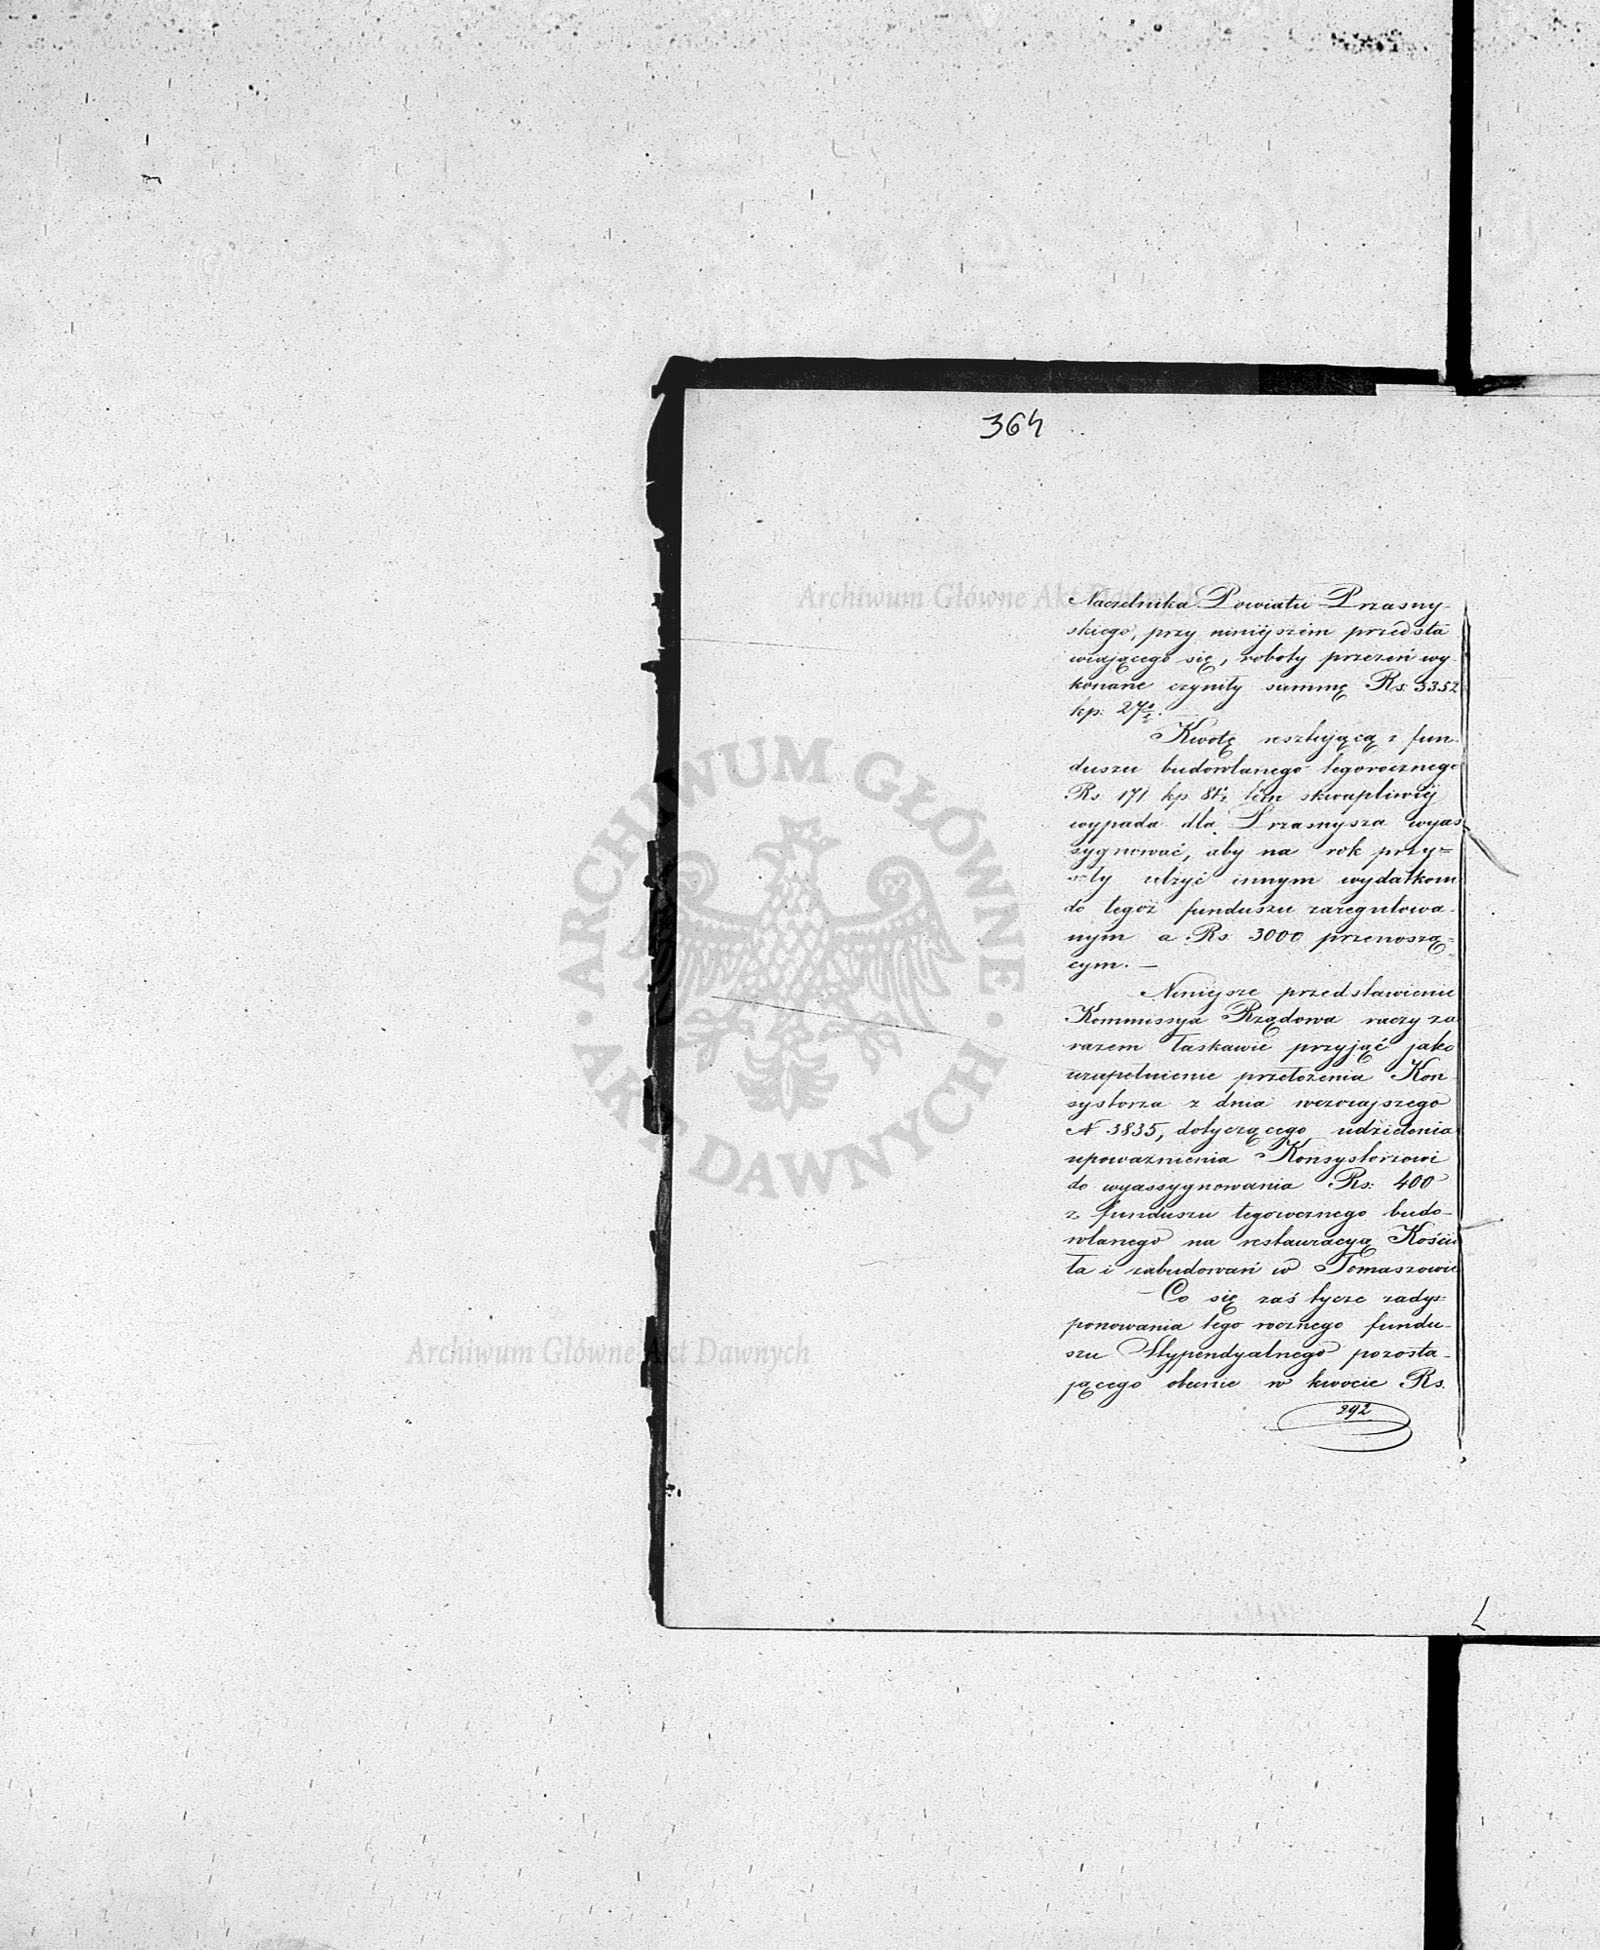 364
Naczelnika Powiatu Przasny-
skiego, przy niniejszem przedsta
wiającego się, roboty przezeń wy-
konane czyniły summę Rs. 3352
kp. 27½.
Kwotę resztującą z fun-
duszu budowlanego tegorocznego
Rs. 171 kp. 81½ tém skwapliwiéj
wypada dla Przasnysza wyas
sygnować, aby na rok przy=
szły ulżyć innym wydatkom
do tegoż funduszu zaregulowa-
nym a Rs. 3000 przenoszą=
cym. —
Niniejsze przedstawienie
Kommissya Rządowa raczy za
razem łaskawie przyjąć jako
uzupełnienie przełożenia Kon-
systorza z dnia wczorajszego
N 3835, dotyczącego udzielenia
upoważnienia Konsystorzowi
do wyassygnowania Rs. 400
z funduszu tegorocznego budo-
wlanego na restauracyą Kościo
ła i zabudowań w Tomaszowie
Co się zaś tycze zadys-
ponowania tego rocznego fundu-
szu Stypendyalnego pozosta-
jącego obecnie w kwocie Rs.
292
Archiwum Główne Akt Dawnych
ARCHIWUM GŁÓWNE
AKT DAWNYCH
Archiwum Główne Akt Dawnych